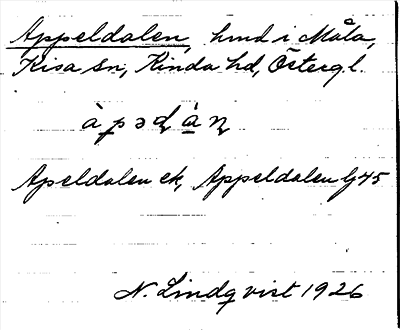 Appeldalen, hmd i Måla,
Kisa sn, Kinda hd, Östergl.
àpədàn
Apeldalen ek, Appeldalen Gj 45
N. Lindqvist 1926